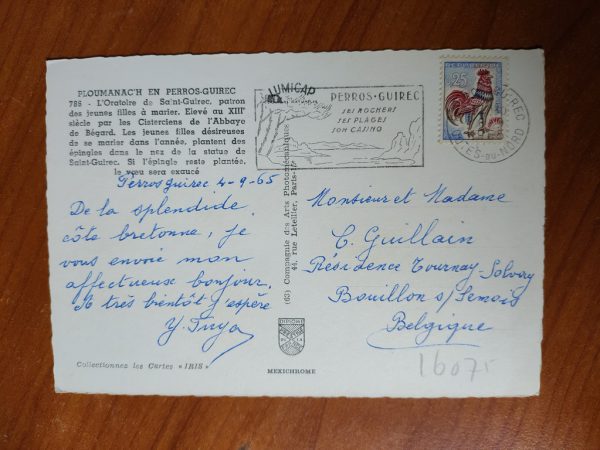 PLOUMANAC'H EN PERROS-GUIREC
786 - L'Oratoire de Saint-Guirec, patron
des jeunes filles à marier. Elevé au XIIIᵉ
siècle par les Cisterciens de l'Abbaye
de Bégard. Les jeunes filles désireuses
de se marier dans l'année, plantent des
épingles dans le nez de la statue de
Saint-Guirec. Si l'épingle reste plantée,
le vœu sera exaucé
Perros Guirec 4-9-65
De la splendide
côte bretonne, je
vous envoie mon
affectueux bonjour.
A très bientôt j'espère
Y.
Collectionnez les Cartes « IRIS »
LUMICAP
PERROS-GUIREC
SES ROCHERS
SES PLAGES
SON CASINO
25
REPUBLIQUE
GUIREC
CÔTES-DU-NORD
(63) Compagnie des Arts Photomécaniques
44, rue Letellier, Paris-15ᵉ
MEXICHROME
Monsieur et Madame
C. Guillain
Résidence Tournay-Solvay
Bouillon s/Semois
Belgique